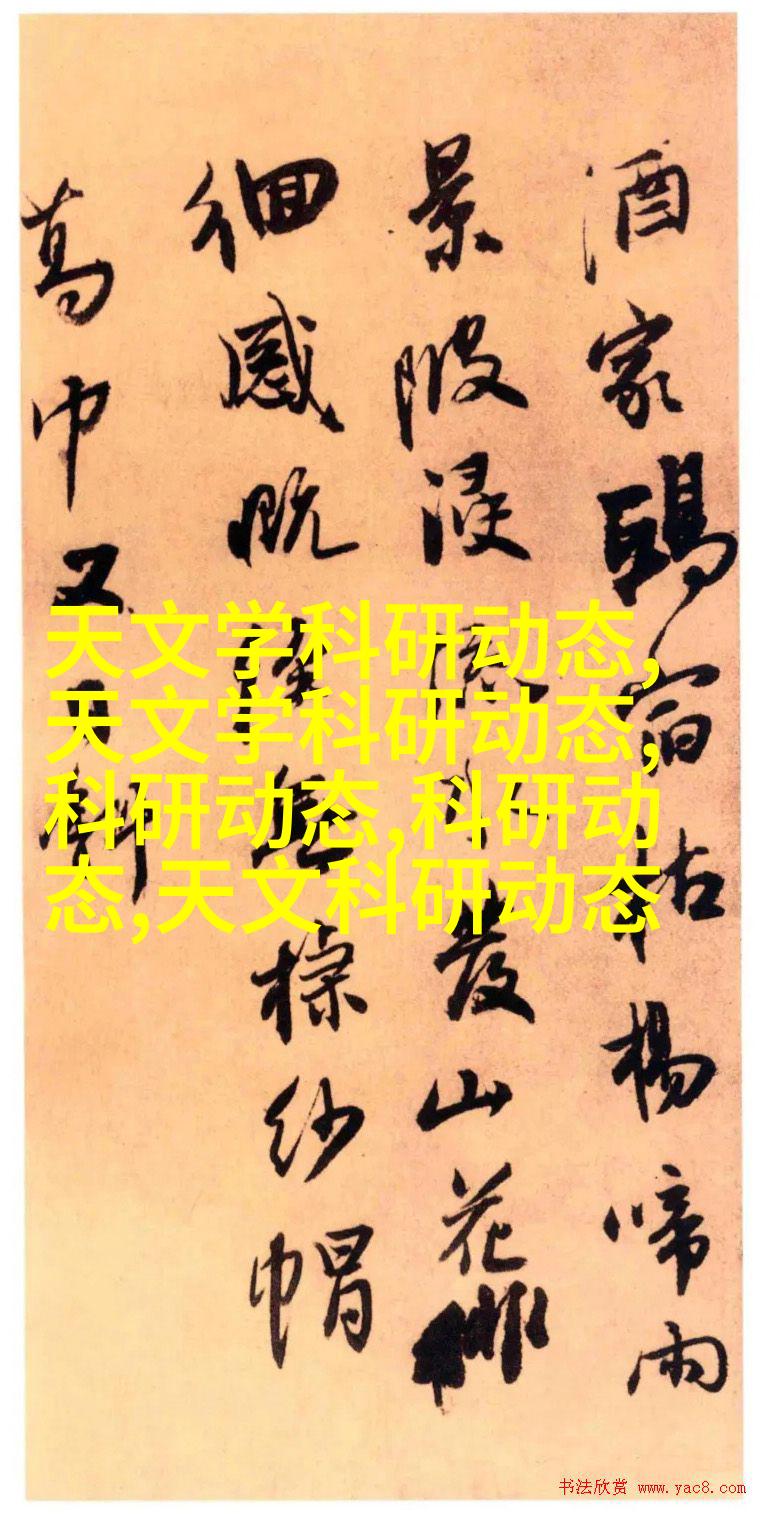 酒家宿枯楊啼雨
景陂浸發山花排
徊感既紗帽
葛巾又
天文学科研动态,
天文学科研动态,
科研动态,科研动
态,天文科研动态
书法欣赏 www.yac8.com